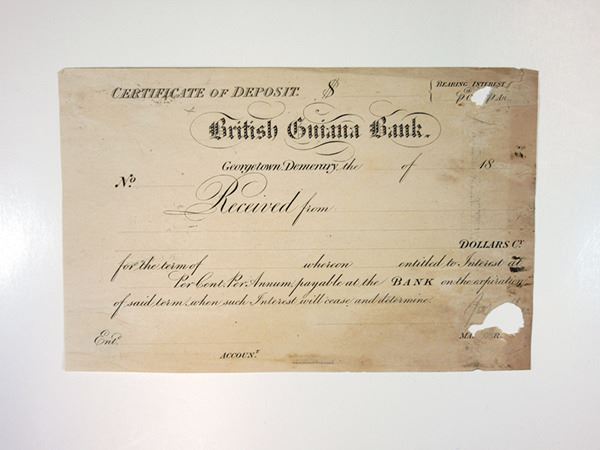 CERTIFICATE OF DEPOSIT. $
BEARING INTEREST
British Guiana Bank.
Georgetown, Demerary, the of 18
No
Received from
DOLLARS Cy.
for the term of whereon entitled to Interest at
Per Cent. Per Annum, payable at the BANK on the expiration
of said term, when such Interest will cease and determine.
Entd.
ACCOUNT